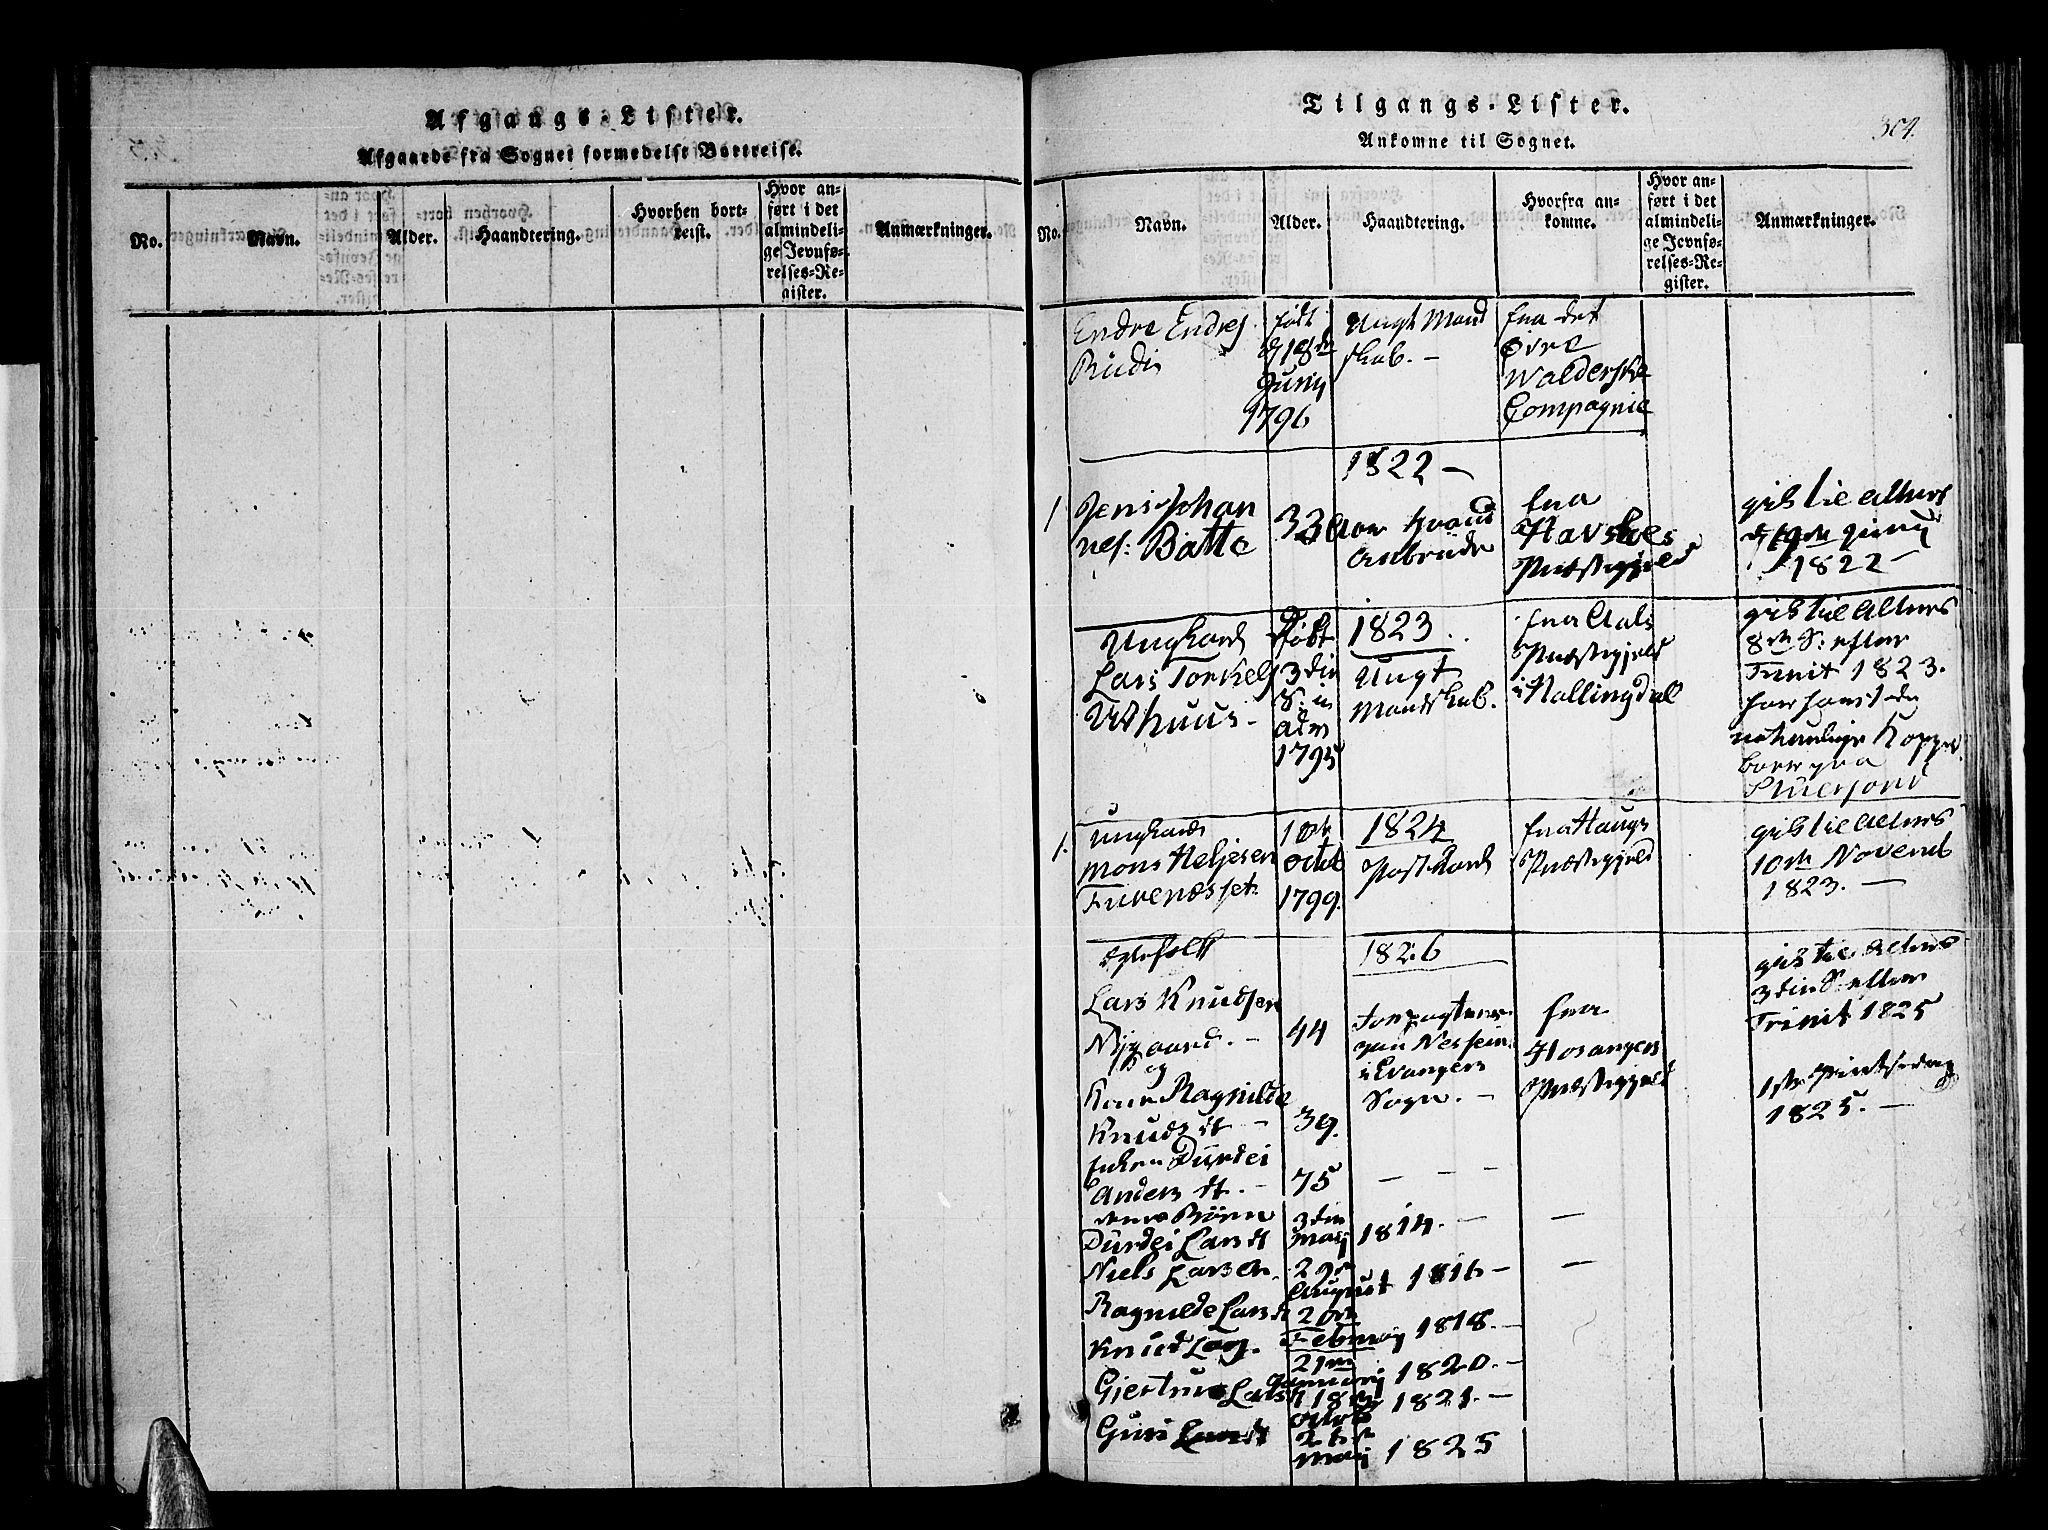 Afgangs-Lister.
Afgaaede fra Sognet formedelst Bortreise.
No.
Navn.
Alder.
Haandtering.
Hvorhen bort-
reist.
Hvor an-
ført i det
almindeli-
ge Jevnfø-
relses-Re-
gister.
Anmærkninger.
Tilgangs-Lister.
Ankomne til Sognet.
304.
No.
Navn.
Alder.
Haandtering.
Hvorfra an-
komne.
Hvor an-
ført i det
almindeli-
ge Jevnfø-
relses-Re-
gister.
Anmærkninger.
Endre Endres
Rudi
født
d 18de
Junij
1796
Ungt Mand
skab. -
fra det
Øvre
Walderske
Compagnie
1822 -
1
Jens Johan
nes: Batte
33
fra
Havsloes
Præstegjeld
gib tie alters
d 19de Junij
1822 -
Ungkarl
Lars Torkels
Uthuus -
Født
3die
S: in
adv
1795
1823
Ungt
Mandskab.
fra Aals
Præstegjeld
i Hallingdall
gib tie alters
8de S: efter
Trinit 1823.
naturlige Koppe
1.
Ungkarl
Mons Heljesen
Furenæsset.
10de
octob
1799.
1824
Postkarl
fra Haugs
Præstegjeld
gib tie alters
10de Novemb
1823. -
Egtefolk
Lars Knudsen
Nygaard. -
og
Kone Ragnilde
Knuds dt -
44
39.
1826
i Evangers
Sogn. -
fra
Hosangers
Præstegjeld
gib tie alters
3die S: efter
Trinit 1825
1ste Pintsedag
1825. -
Enken Durdei
Anders dt. -
75
deres Børn
Durdei Lars dt
3die
Maij
1814. -
Niels Larsen.
29de
August 1816 -
Ragnilde Lars dt
20de
Februarij 1818. -
Knud Lars.
21de
Januarij 1820. -
Gjertrud Lars dt
18de
octob 1821. -
Guri Lars dt
Maij 1825